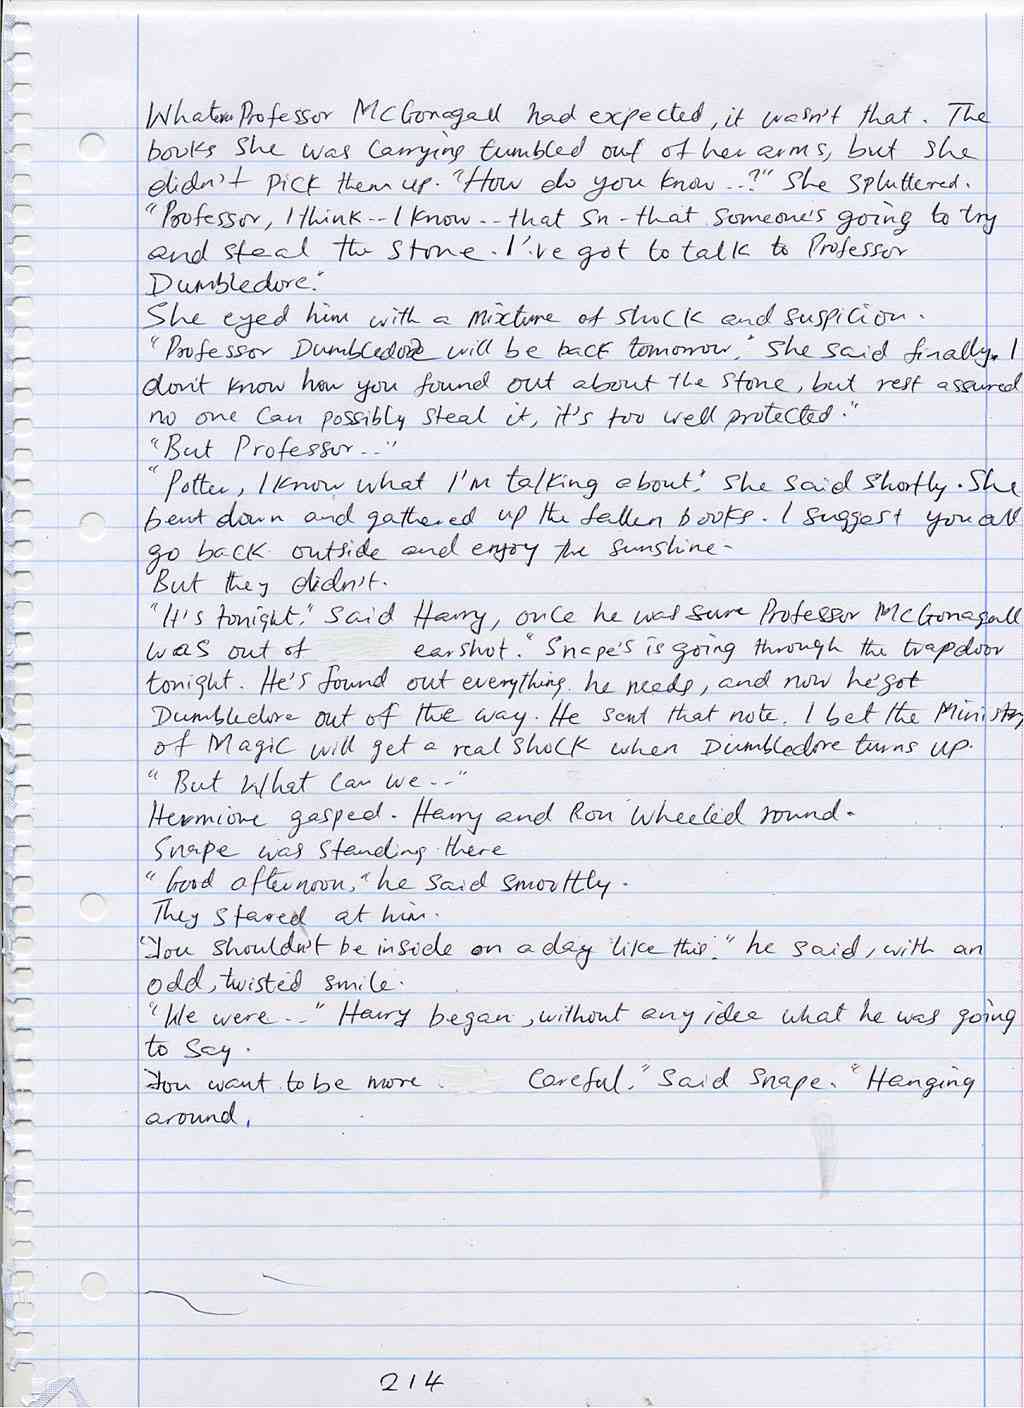 Whatever Professor McGonagall had expected, it wasn't that. The
books she was carrying tumbled out of her arms, but she
didn't pick them up. "How do you know --?" She spluttered.
"Professor, I think -- I know -- that Sn - that someone's going to try
and steal the stone. I've got to talk to Professor
Dumbledore."
She eyed him with a mixture of shock and suspicion.
"Professor Dumbledore will be back tomorrow," She said finally. I
don't know how you found out about the stone, but rest assured
no one can possibly steal it, it's too well protected."
"But Professor --"
"Potter, I know what I'm talking about." She said shortly. She
bent down and gathered up the fallen books. I suggest you all
go back outside and enjoy the sunshine-
But they didn't.
"It's tonight," said Harry, once he was sure Professor McGonagall
was out of earshot. "Snape's is going through the trapdoor
tonight. He's found out everything he needs, and now he got
Dumbledore out of the way. He sent that note. I bet the Ministry
of Magic will get a real shock when Dumbledore turns up.
"But What can we --"
Hermione gasped. Harry and Ron wheeled round.
Snape was standing there
"Good afternoon," he said smoothly.
They stared at him.
"You shouldn't be inside on a day like this." he said, with an
odd, twisted smile.
"We were --" Harry began, without any idea what he was going
to say.
You want to be more careful," said Snape. "Hanging
around,
214